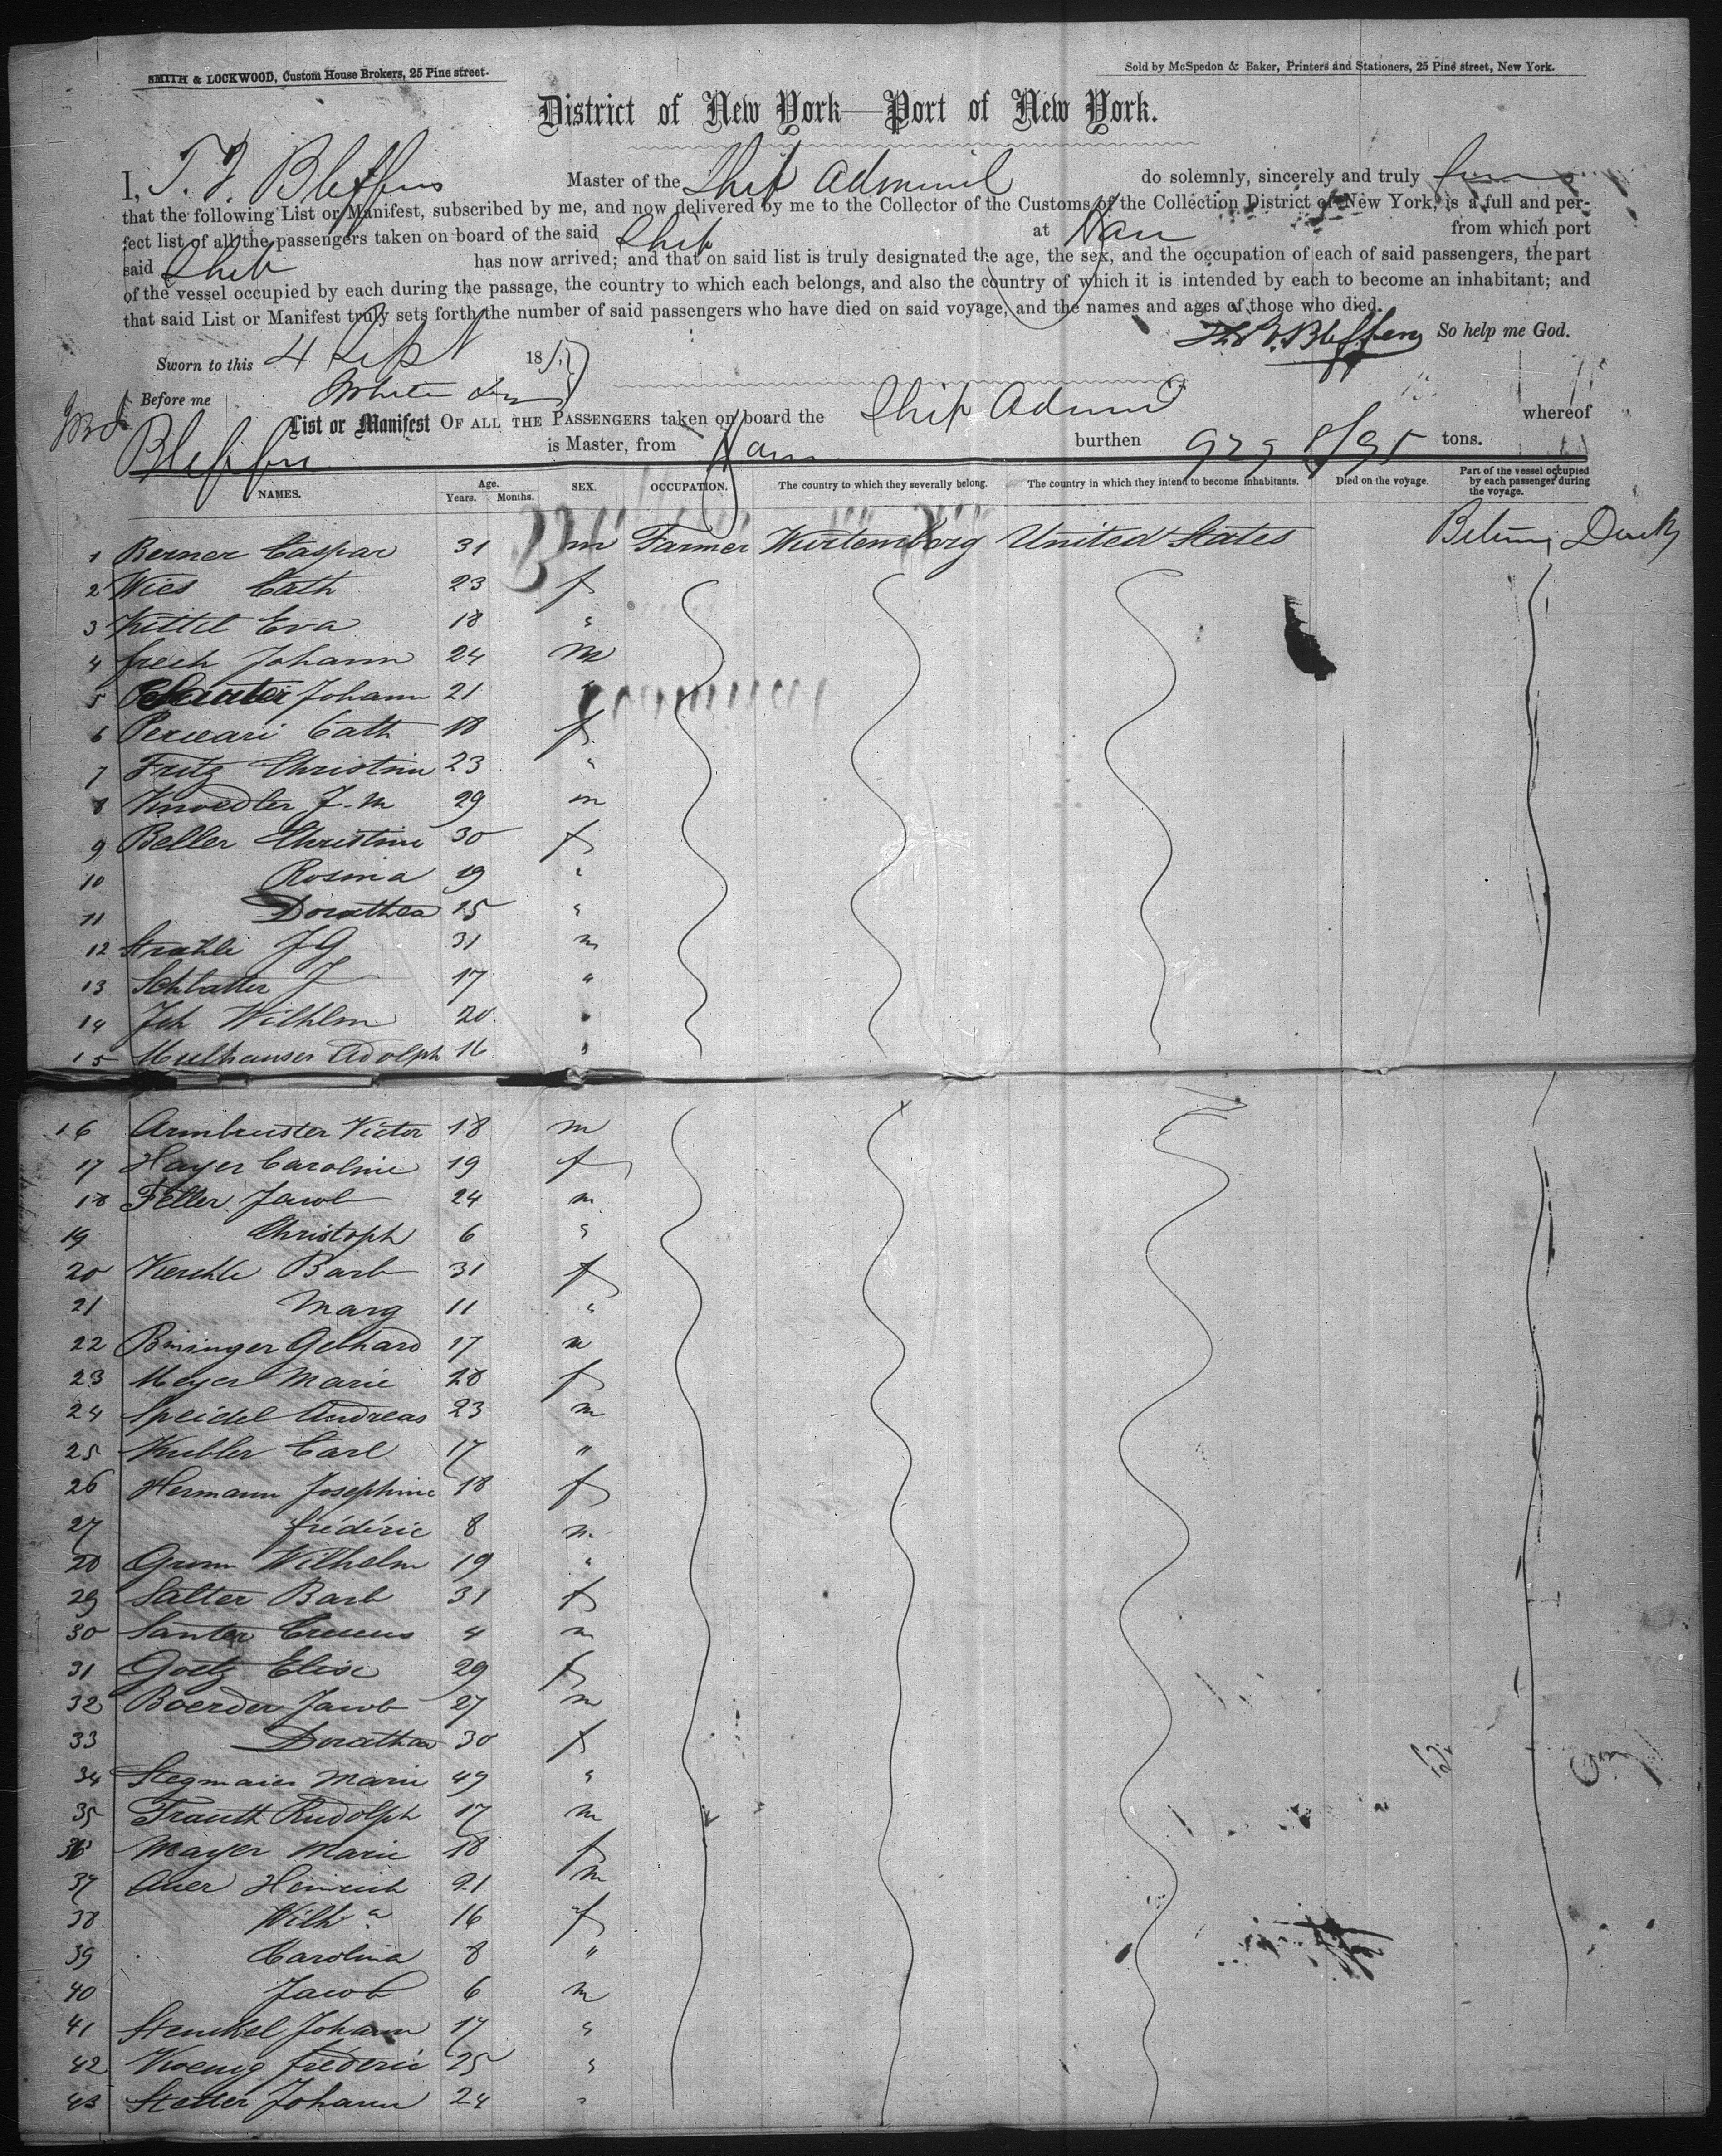 SMITH & LOCKWOOD, Custom House Brokers, 25 Pine street.
Sold by McSpedon & Baker, Printers and Stationers, 25 Pine street, New York.
District of New York—Port of New York.
I, T. J. Bleffens Master of the Ship Admiral do solemnly, sincerely and truly
that the following List or Manifest, subscribed by me, and now delivered by me to the Collector of the Customs of the Collection District of New York, is a full and per-
fect list of all the passengers taken on board of the said Ship at Hav from which port
said Ship has now arrived; and that on said list is truly designated the age, the sex, and the occupation of each of said passengers, the part
of the vessel occupied by each during the passage, the country to which each belongs, and also the country of which it is intended by each to become an inhabitant; and
that said List or Manifest truly sets forth the number of said passengers who have died on said voyage, and the names and ages of those who died.
So help me God.
Sworn to this 4 Sept 185
Before me
List or Manifest OF ALL THE PASSENGERS taken on board the Ship Admiral whereof
Bleffens is Master, from Hav burthen 929 8/95 tons.
NAMES. Age. Years. Months. SEX. OCCUPATION. The country to which they severally belong. The country in which they intend to become inhabitants. Died on the voyage. Part of the vessel occupied by each passenger during the voyage.
1 Berner Caspar 31 m Farmer Wurtemberg United States Between Decks
2 Wies Cath 23 f
3 Kittel Eva 18 "
4 Frech Johann 24 m
5 Johann 21 "
6 Cath 18 f
7 Fritz Christine 23 "
8 Knoedler J. M 29 m
9 Beller Christine 30 f
10 Rosina 19 "
11 Dorathea 25 "
12 Strahle J G 31 m
13 Schlatter J 17 "
14 Joh Wilhlm 20 "
15 Mulhauser Adolph 16 "
16 Armbruster Victor 18 m
17 Hayer Caroline 19 f
18 Feller Jacob 24 m
19 Christoph 6 "
20 Kerchle Barb 31 f
21 Marg 11 "
22 Bininger Gebhard 17 m
23 Meyer Marie 28 f
24 Speidel Andreas 23 m
25 Kubler Carl 17 "
26 Hermann Josephine 18 f
27 Fréderic 8 m
28 Grum Wilhelm 19 "
29 Salter Barb 31 f
30 Santer 4 m
31 Goetz Elise 29 f
32 Boerder Jacob 27 m
33 Dorathea 30 f
34 Stegmaier Marie 49 "
35 Trautt Rudolph 17 m
36 Mayer Marie 18 f
37 Auer Heinrich 21 m
38 Wilh a 16 f
39 Carolina 8 "
40 Jacob 6 m
41 Stenckel Johann 17 "
42 Koenig Frederic 25 "
43 Stetter Johann 24 "